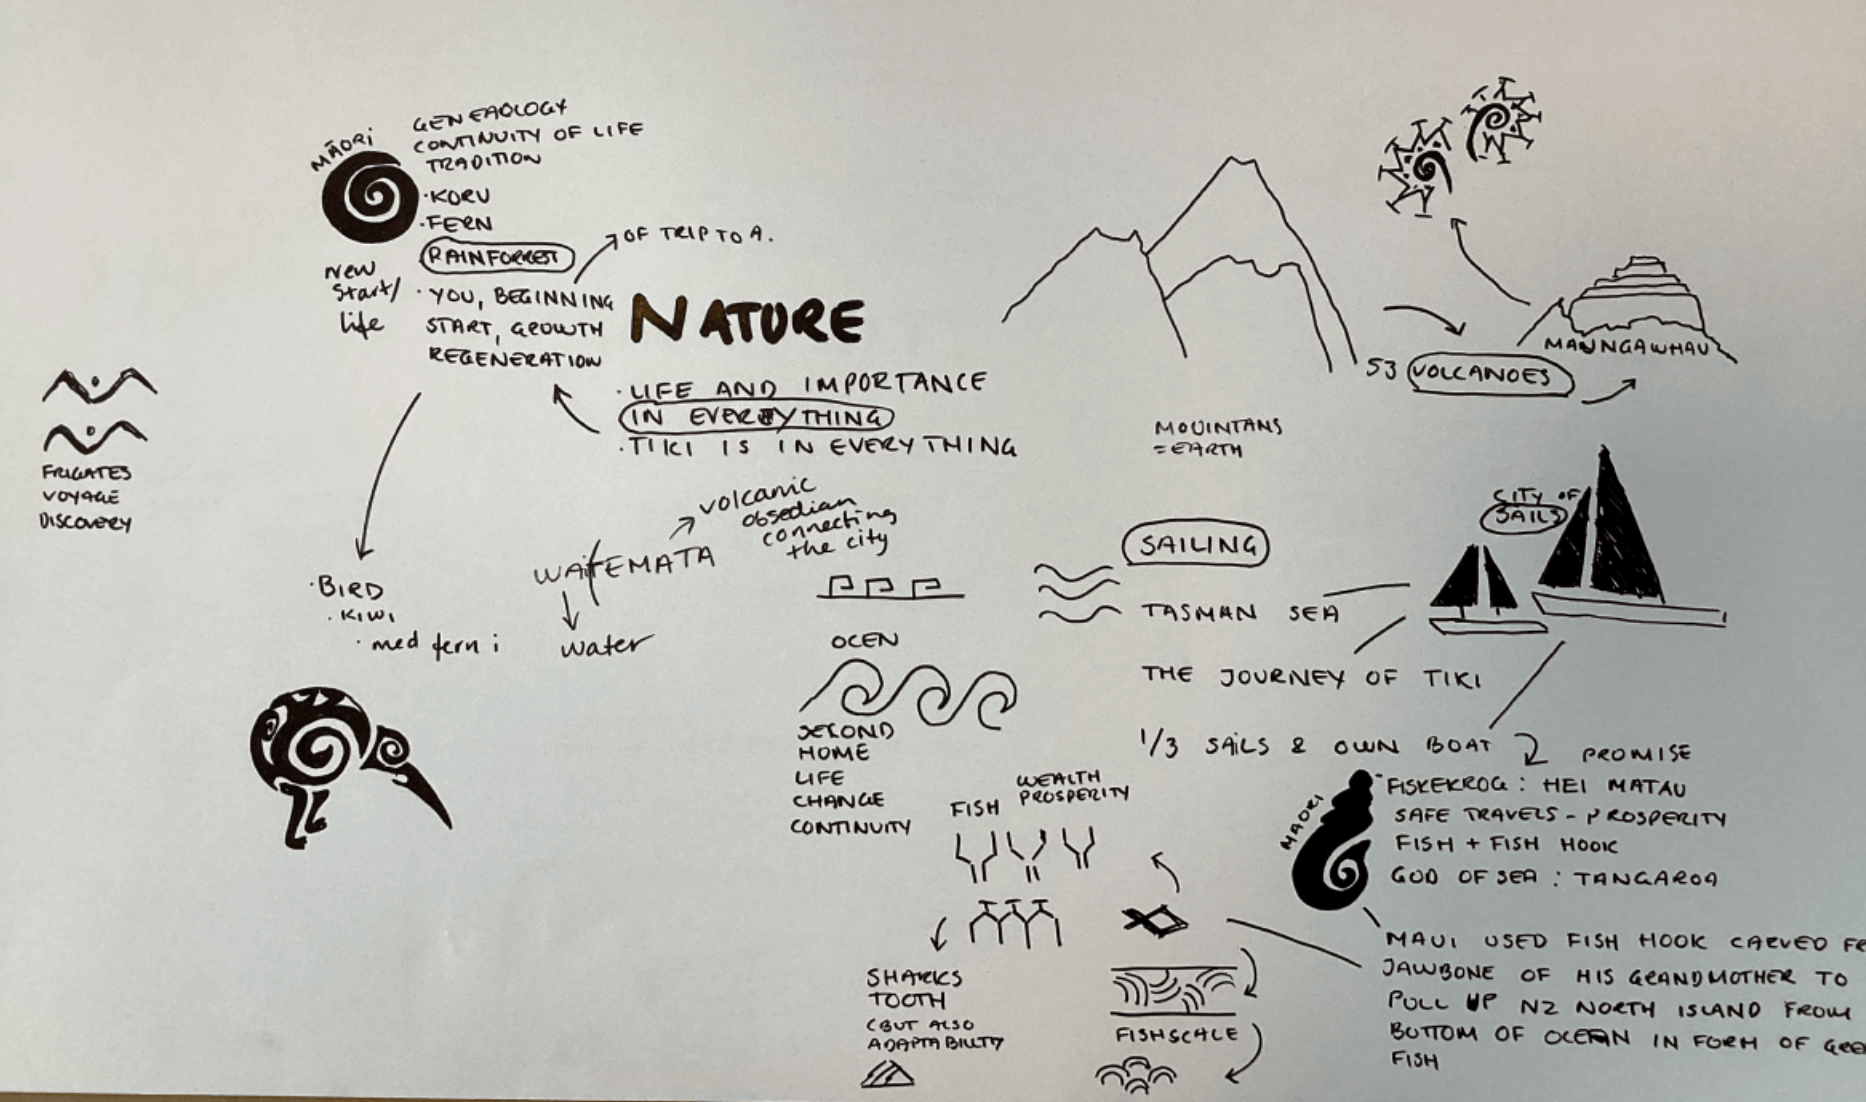 MĀORI
GENEAOLOGY
CONTINUITY OF LIFE
TRADITION
·KORU
·FERN
RAINFORREST
OF TRIP TO A.
New
Start/
life
· YOU, BEGINNING
START, GROWTH
REGENERATION
NATURE
· LIFE AND IMPORTANCE
IN EVERYTHING
· TIKI IS IN EVERYTHING
FRIGATES
VOYAGE
DISCOVERY
MAUNGAWHAU
53 VOLCANOES
MOUINTANS
= EARTH
CITY OF
SAILS
volcanic
obsedian
connecting
the city
WAITEMATA
water
· BIRD
· KIWI
· med fern i
SAILING
TASMAN SEA
OCEN
THE JOURNEY OF TIKI
SECOND
HOME
LIFE
CHANGE
CONTINUITY
1/3 SAILS & OWN BOAT
PROMISE
FISH
WEALTH
PROSPERITY
MAORI
FISKEKROG : HEI MATAU
SAFE TRAVELS - PROSPERITY
FISH + FISH HOOK
GOD OF SEA : TANGAROA
SHARKS
TOOTH
(BUT ALSO
ADAPTABILITY
FISHSCALE
MAUI USED FISH HOOK CARVED
JAWBONE OF HIS GRANDMOTHER TO
PULL UP NZ NORTH ISLAND FROM
BOTTOM OF OCEAN IN FORM OF
FISH